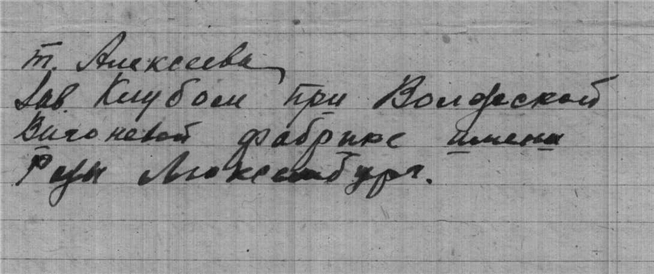 т. Алексеева
Зав. Клубом при Волжской
Вигоневой фабрике имени
Розы Люксембург.